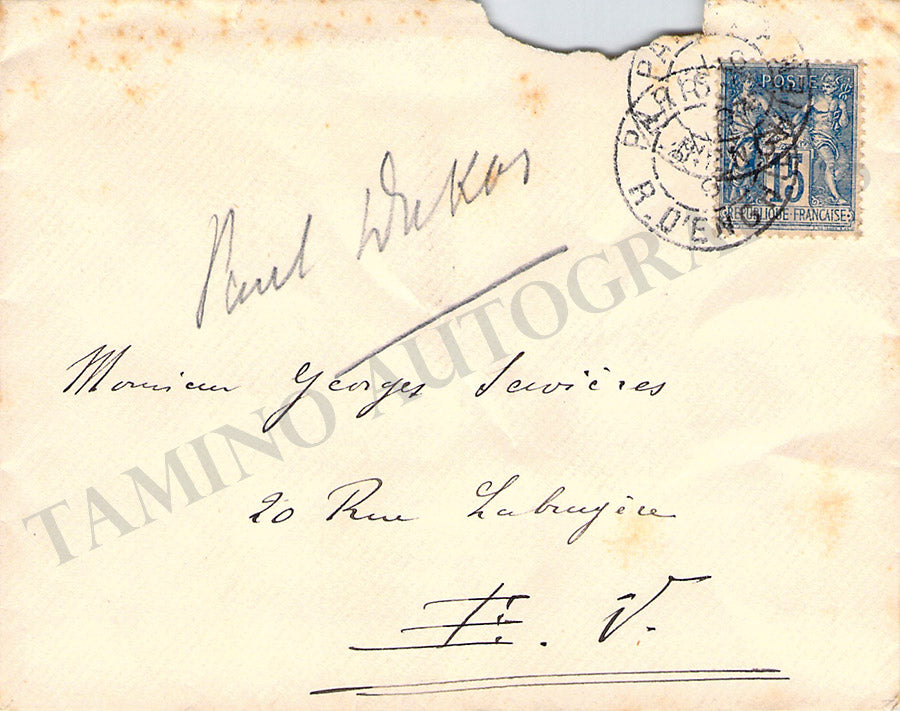 POSTE
15
REPUBLIQUE FRANÇAISE
PARIS
R. D'ENGHIEN
Paul Dukas
Monsieur Georges Servières
20 Rue Labruyère
E. V.
TAMINO AUTOGRAPHS